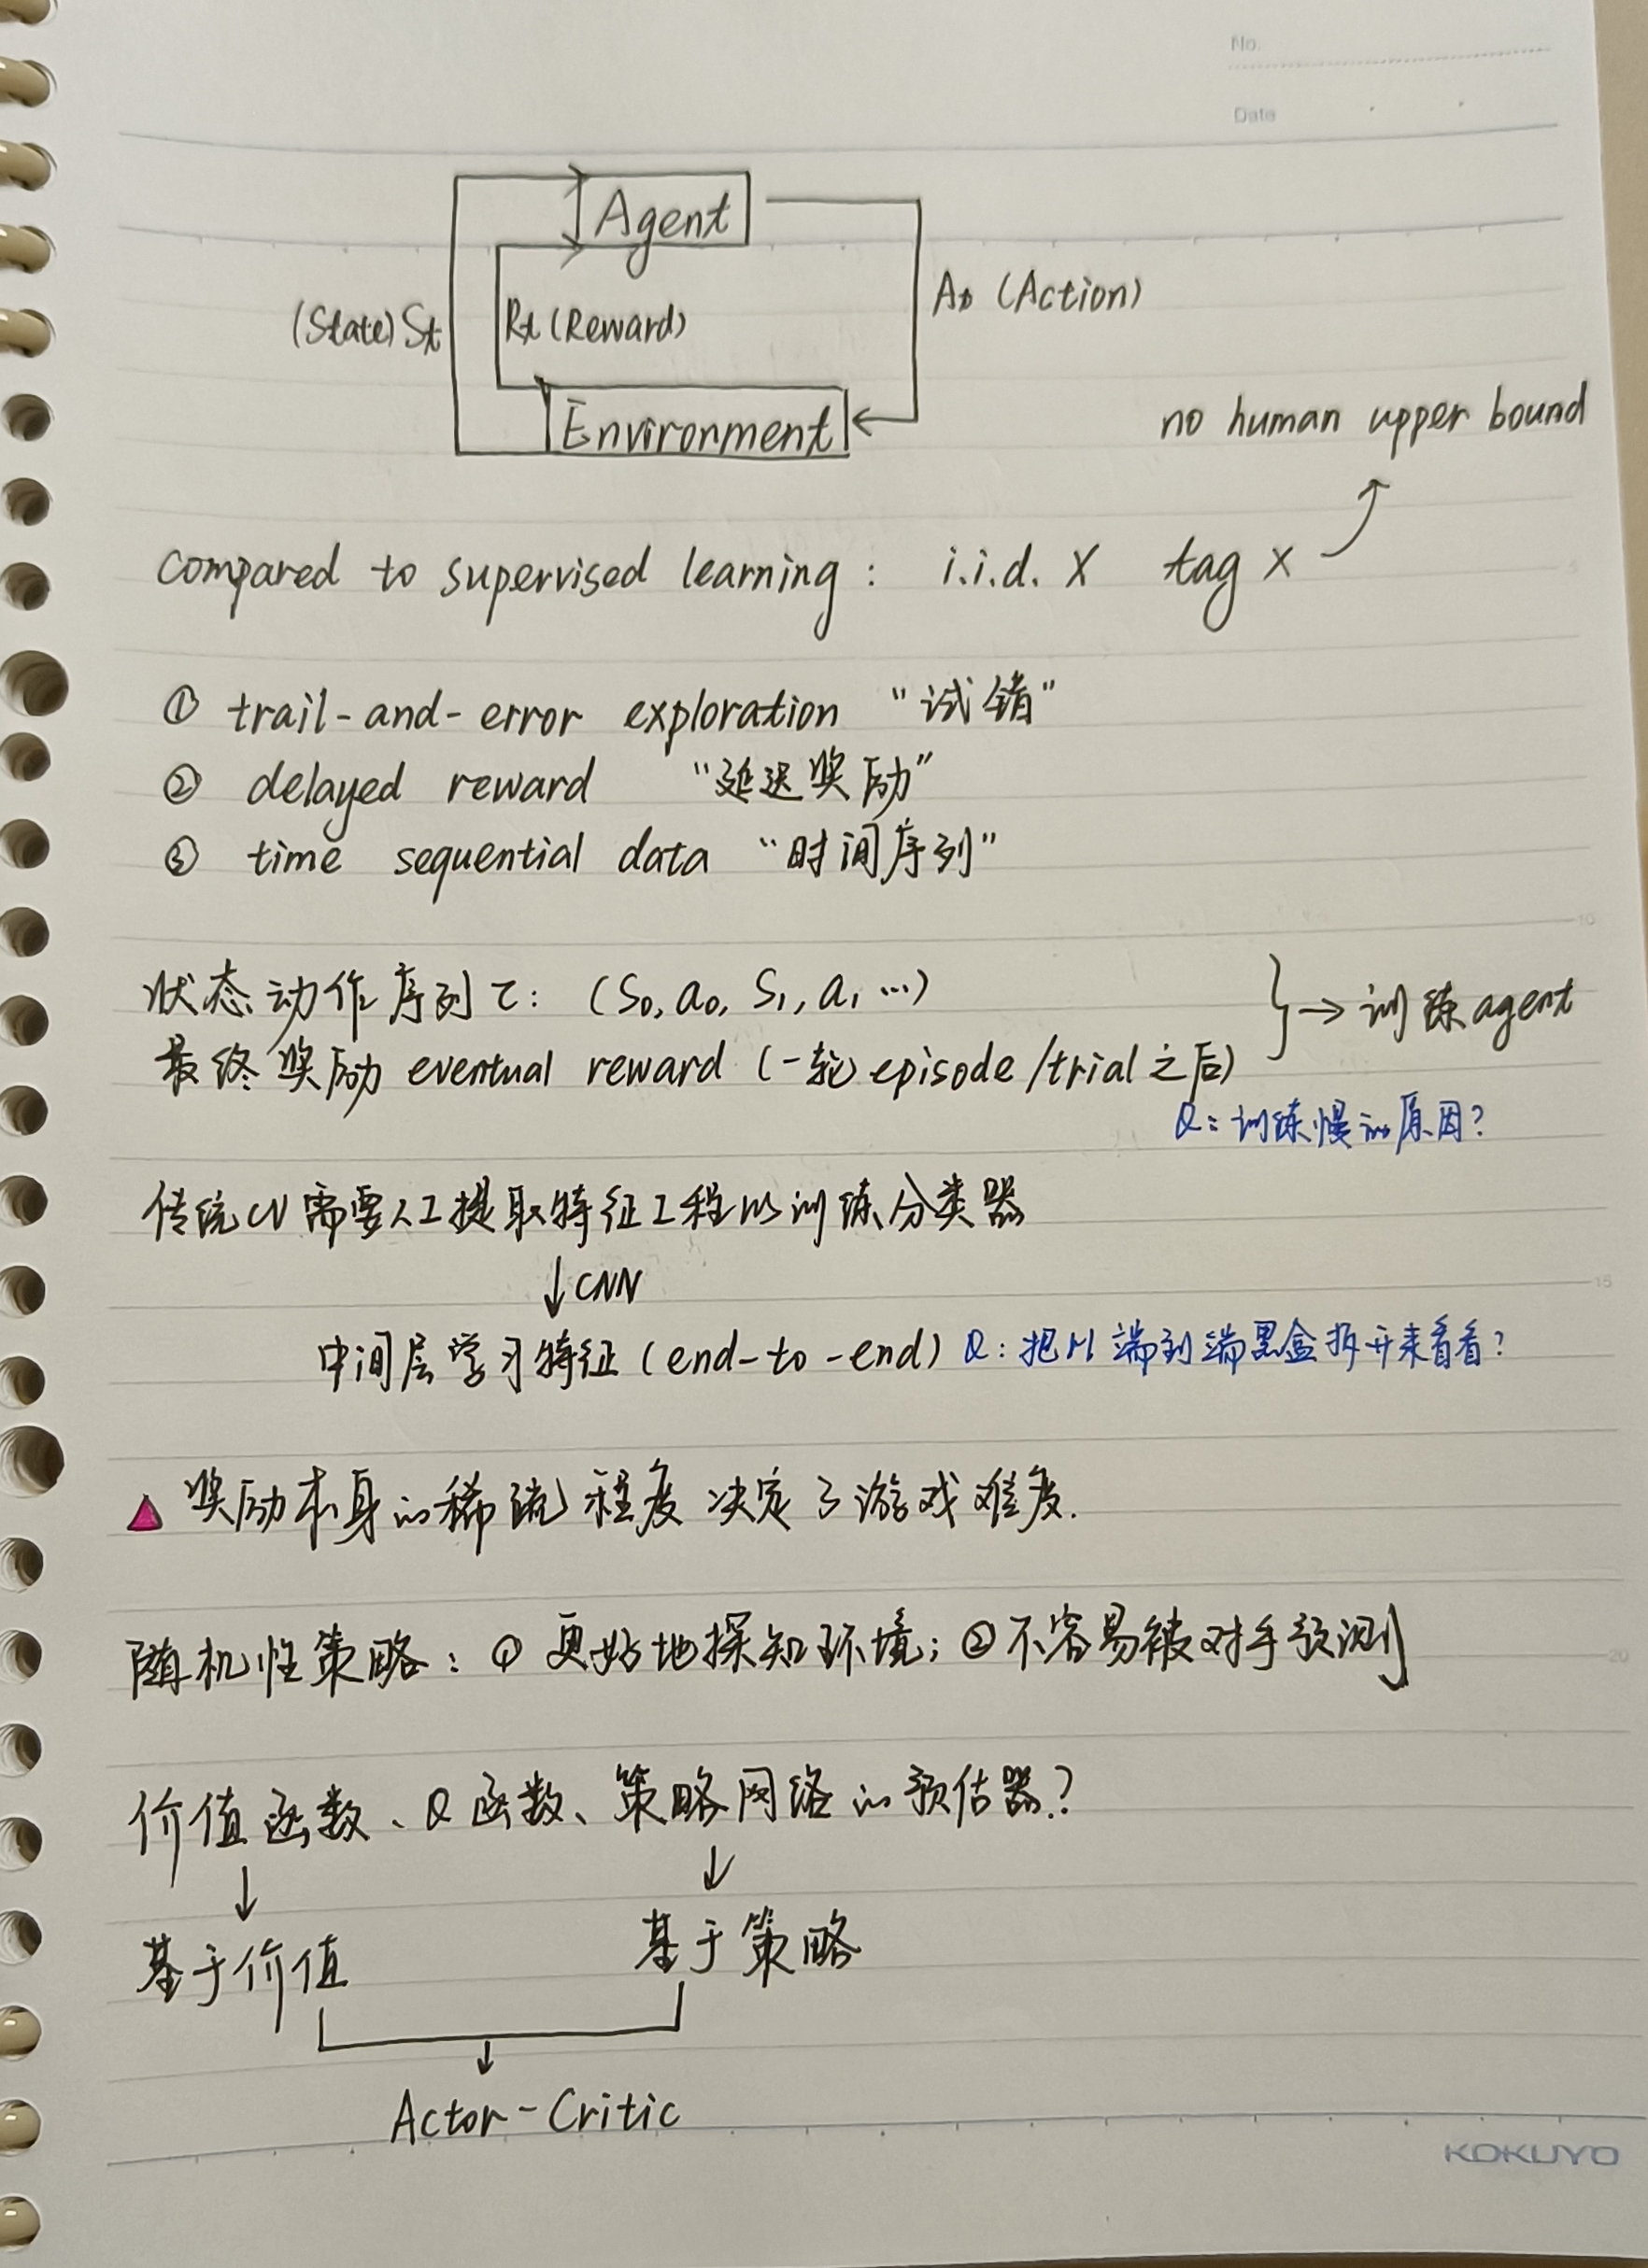 No.
Date
Agent
(State) St
Rt (Reward)
At (Action)
Environment
no human upper bound
compared to supervised learning : i.i.d. X tag x
① trail-and-error exploration “试错”
② delayed reward “延迟奖励”
③ time sequential data “时间序列”
状态动作序列τ: (S0, a0, S1, a1 …)
最终奖励 eventual reward (一轮 episode /trial 之后)
→ 训练 agent
Q: 训练慢的原因?
传统CV需要人工提取特征工程以训练分类器
↓ CNN
中间层学习特征 (end-to-end) Q: 把从端到端黑盒拆开来看看?
▲ 奖励本身的稀疏程度决定了游戏难度.
随机性策略: ① 更好地探知环境; ② 不容易被对手预测
价值函数、Q函数、策略网络的预估器?
↓ ↓
基于价值 基于策略
↓
Actor-Critic
10
15
20
KOKUYO